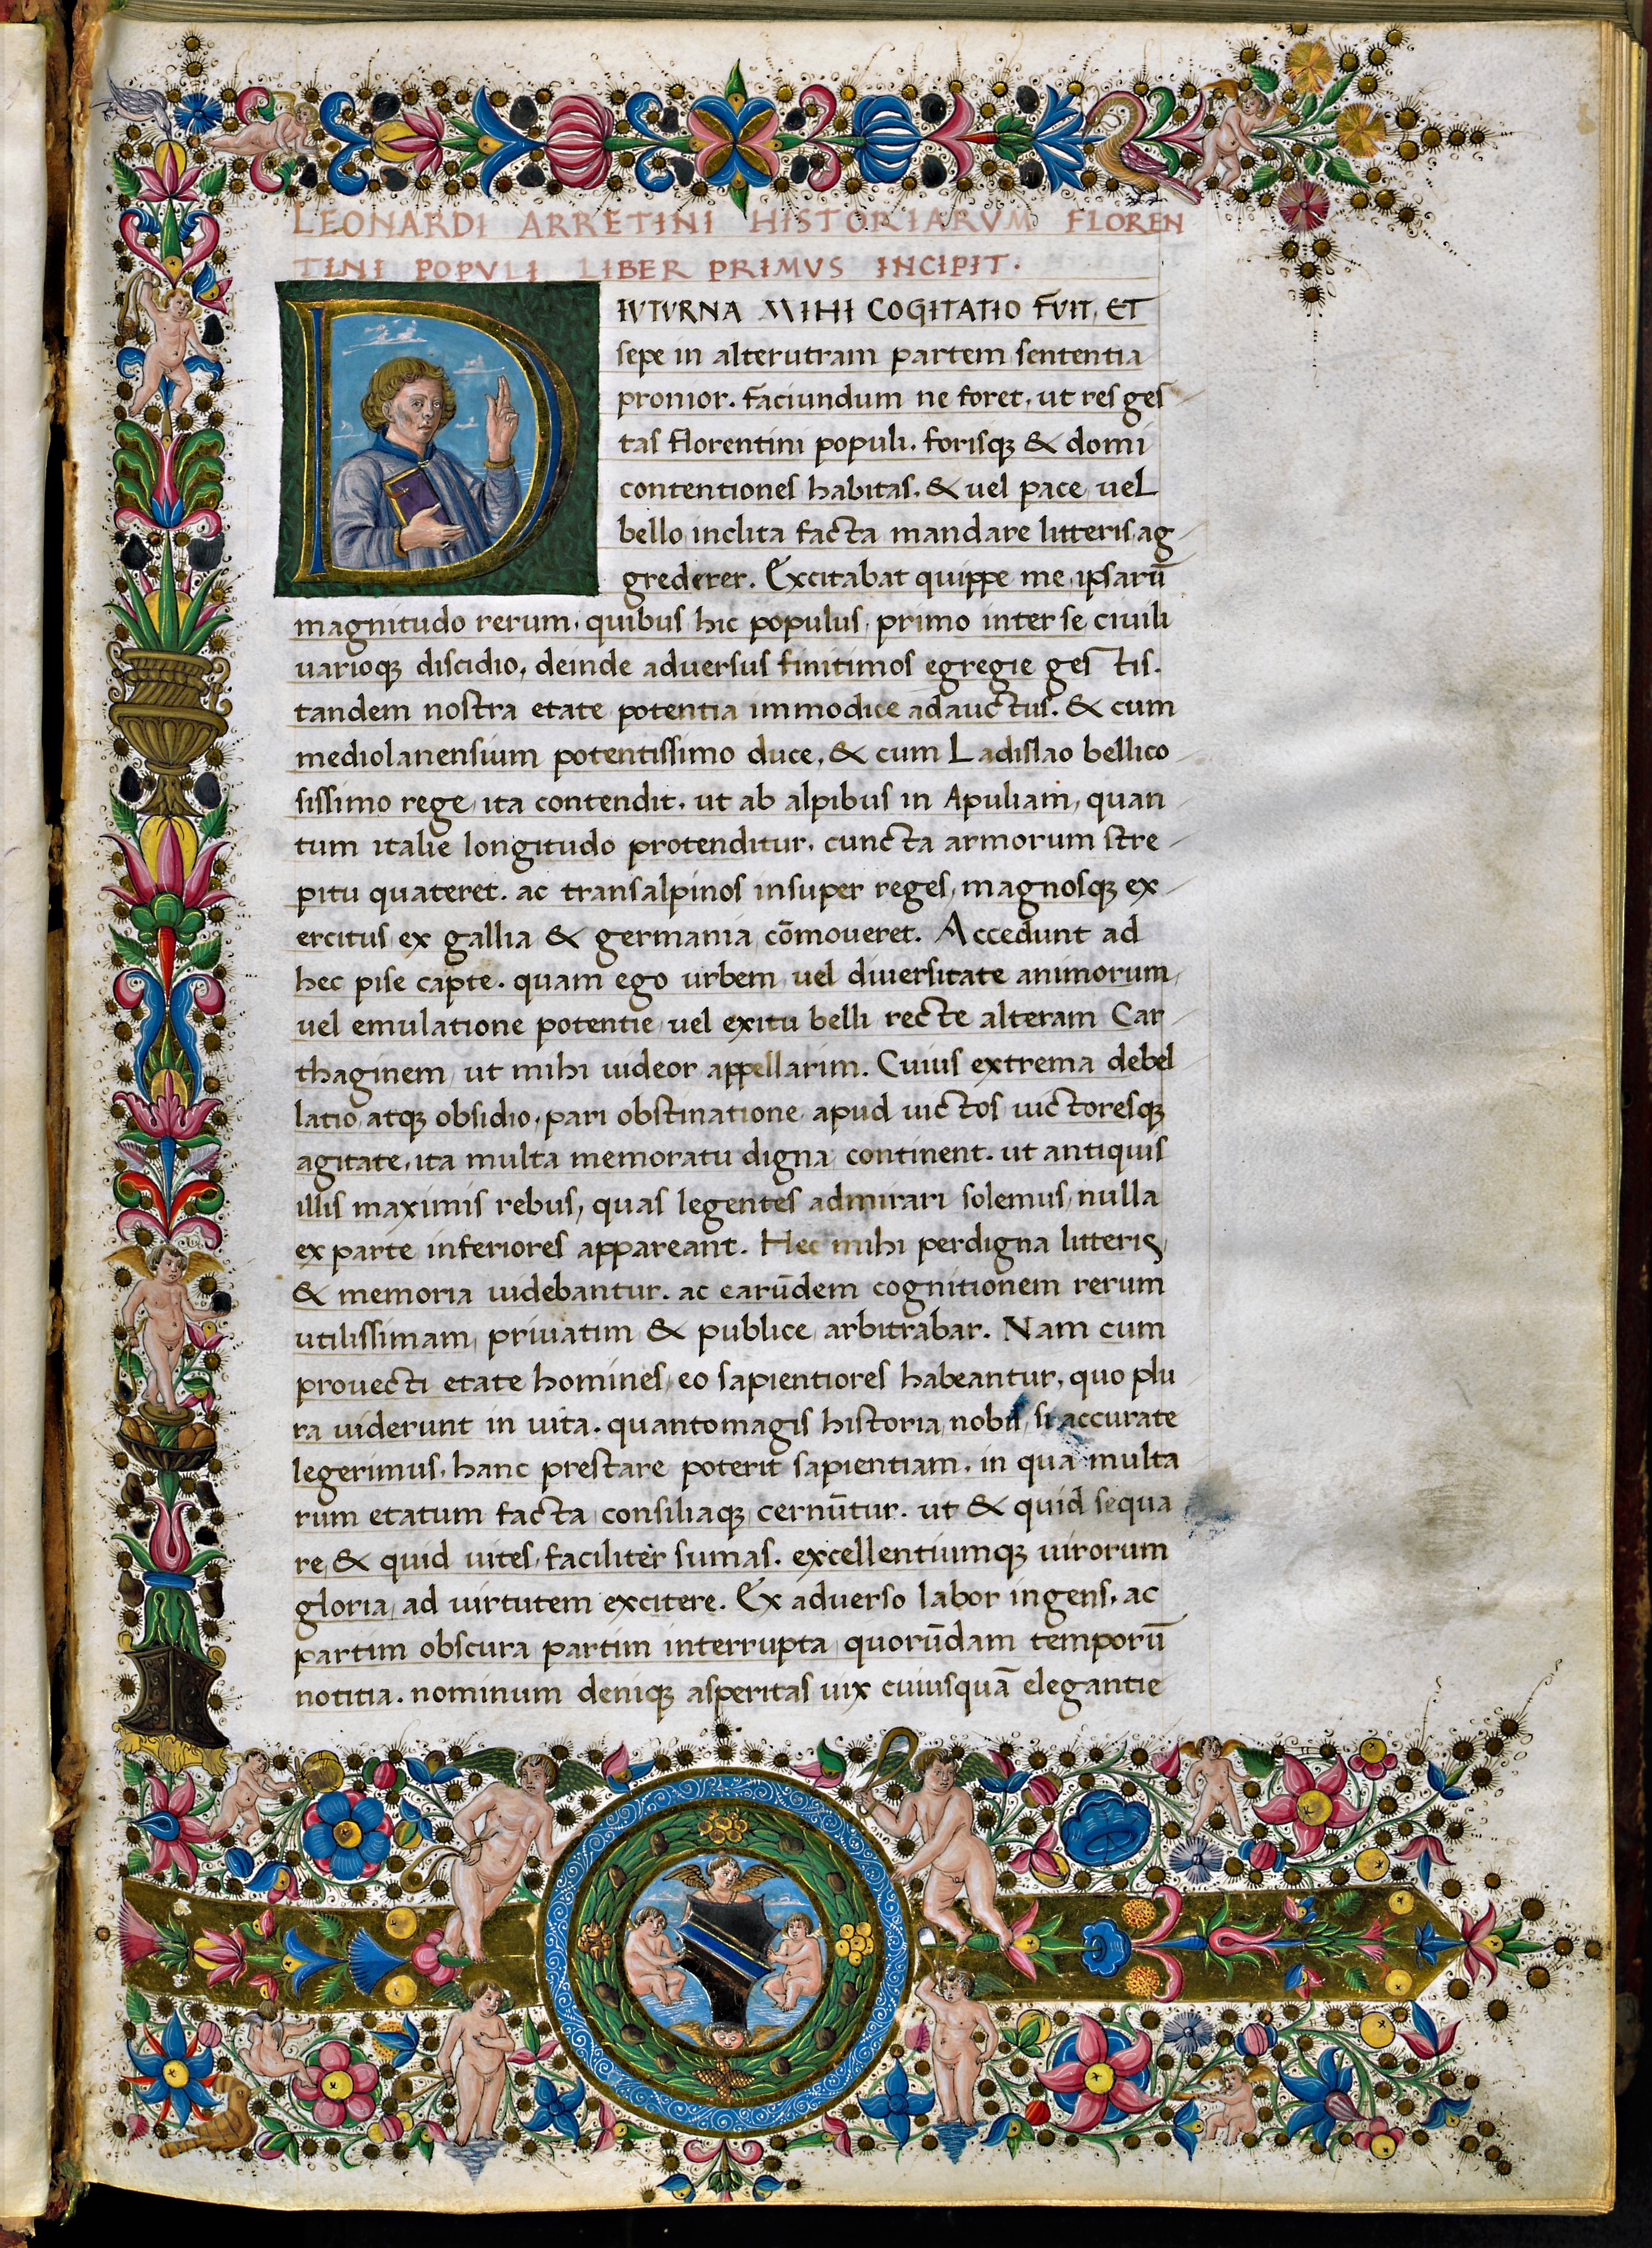 LEONARDI ARRETINI HISTORIARVM FLOREN
TINI POPVLI LIBER PRIMVS INCIPIT.
DIVTVRNA MIHI COGITATIO FVIT, ET
sepe in alterutram partem sententia
pronior. faciundum ne foret, ut res ges
tas florentini populi. forisq; & domi
contentiones habitas. & uel pace uel
bello inclita facta mandare litteris ag
grederer. Excitabat quippe me ipsarū
magnitudo rerum, quibus hic populus primo inter se ciuili
uarioq; discidio, deinde aduersus finitimos egregie gestis.
tandem nostra etate potentia immodice adauctus. & cum
mediolanensium potentissimo duce, & cum Ladislao bellico
sissimo rege ita contendit. ut ab alpibus in Apuliam, quan
tum italie longitudo protenditur, cuncta armorum stre
pitu quateret. ac transalpinos insuper reges, magnosq; ex
ercitus ex gallia & germania cōmoueret. Accedunt ad
hec pise capte. quam ego urbem uel diuersitate animorum,
uel emulatione potentie uel exitu belli recte alteram Car
thaginem, ut mihi uideor appellarim. Cuius extrema debel
latio atq; obsidio, pari obstinatione apud uictos uictoresq;
agitate, ita multa memoratu digna continent. ut antiquis
illis maximis rebus, quas legentes admirari solemus, nulla
ex parte inferiores appareant. Hec mihi perdigna litteris,
& memoria uidebantur. ac earūdem cognitionem rerum
utilissimam, priuatim & publice arbitrabar. Nam cum
prouecti etate homines eo sapientiores habeantur, quo plu
ra uiderunt in uita. quantomagis historia nobis, si accurate
legerimus, hanc prestare poterit sapientiam. in qua multa
rum etatum facta consiliaq; cernūtur. ut & quid sequa
re, & quid uites, faciliter sumas. excellentiumq; uirorum
gloria, ad uirtutem excitere. Ex aduerso labor ingens, ac
partim obscura partim interrupta quorūdam temporū
notitia. nominum deniq; asperitas uix cuiusquā elegantie